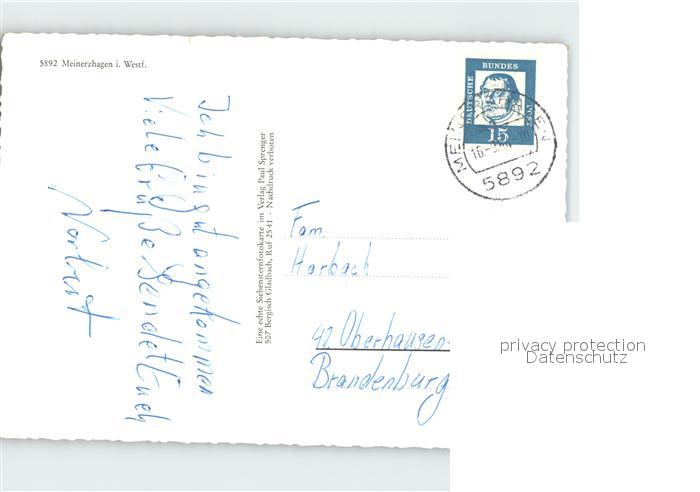 5892 Meinerzhagen i. Westf.
DEUTSCHE BUNDESPOST
15
5892
Ich bin gut angekommen
Viele Grüße sendet Euch
Norbert
Eine echte Siebensternfotokarte im Verlag Paul Sprenger
507 Bergisch Gladbach, Ruf 2541 - Nachdruck verboten
Fam.
Horbach
42 Oberhausen-
Brandenburg
privacy protection
Datenschutz